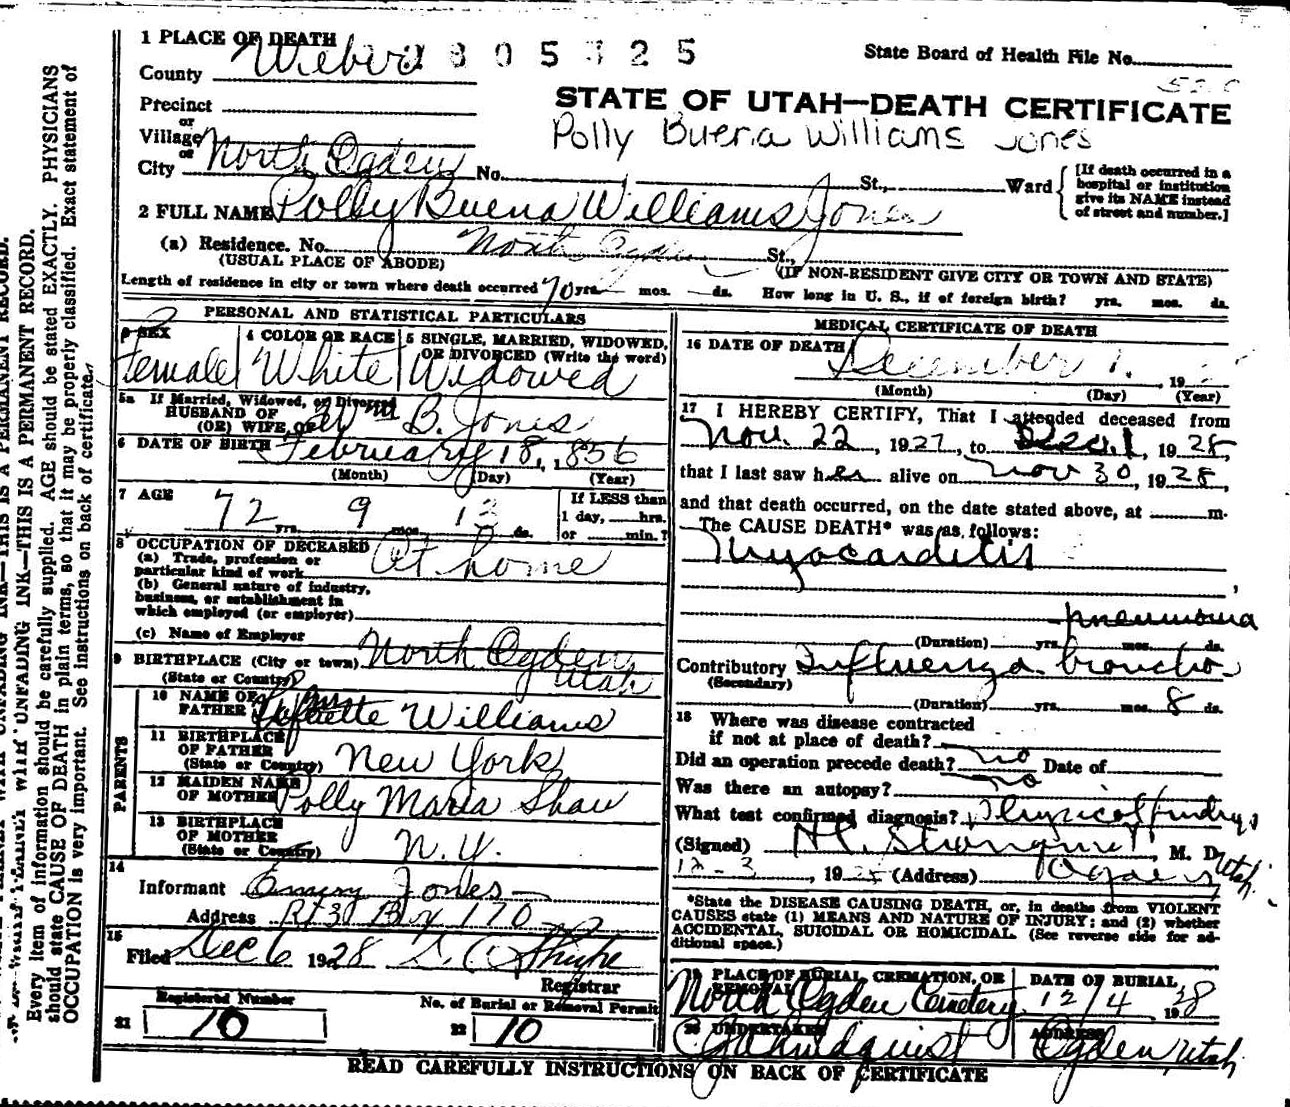 1 PLACE OF DEATH
County Weber 2805325
State Board of Health File No.
Precinct
or
Village
or
City North Ogden No. St., Ward
STATE OF UTAH—DEATH CERTIFICATE
Polly Buena Williams Jones
[If death occurred in a hospital or institution give its NAME instead of street and number.]
2 FULL NAME Polly Buena Williams Jones
(a) Residence. No. North Ogden St.,
(USUAL PLACE OF ABODE) (IF NON-RESIDENT GIVE CITY OR TOWN AND STATE)
Length of residence in city or town where death occurred 70 yrs. mos. ds. How long in U. S., if of foreign birth? yrs. mos. ds.
PERSONAL AND STATISTICAL PARTICULARS
3 SEX
Female
4 COLOR OR RACE
White
5 SINGLE, MARRIED, WIDOWED, OR DIVORCED (Write the word)
Widowed
5a If Married, Widowed, or Divorced
HUSBAND OF
(OR) WIFE OF Wm B. Jones
6 DATE OF BIRTH February 18, 1856
(Month) (Day) (Year)
7 AGE 72 yrs. 9 mos. 13 ds.
If LESS than
1 day, hrs.
or min.?
8 OCCUPATION OF DECEASED
(a) Trade, profession or
particular kind of work At home
(b) General nature of industry,
business, or establishment in
which employed (or employer)
(c) Name of Employer
9 BIRTHPLACE (City or town) North Ogden,
(State or Country) Utah
PARENTS
10 NAME OF
FATHER Williams
11 BIRTHPLACE
OF FATHER
(State or Country) New York
12 MAIDEN NAME
OF MOTHER Polly Maria Shaw
13 BIRTHPLACE
OF MOTHER
(State or Country) N.Y.
14
Informant Jones
Address Rt 3 Box 170
15
Filed Dec 6 1928
Registrar
Registered Number
21 10
No. of Burial or Removal Permit
22 10
MEDICAL CERTIFICATE OF DEATH
16 DATE OF DEATH December 1. , 19
(Month) (Day) (Year)
17 I HEREBY CERTIFY, That I attended deceased from
Nov. 22, 1927, to Dec. 1, 1928,
that I last saw her alive on Nov 30, 1928,
and that death occurred, on the date stated above, at m.
The CAUSE DEATH* was as follows:
Myocarditis
pneumonia
(Duration) yrs. mos. ds.
Contributory Influenza broncho
(Secondary)
(Duration) yrs. mos. 8 ds.
18 Where was disease contracted
if not at place of death?
Did an operation precede death? no Date of
Was there an autopsy? no
What test confirmed diagnosis? Physical findings
(Signed) M. D.
12-3, 1928 (Address) Ogden Utah
*State the DISEASE CAUSING DEATH, or, in deaths from VIOLENT
CAUSES state (1) MEANS AND NATURE OF INJURY; and (2) whether
ACCIDENTAL, SUICIDAL OR HOMICIDAL. (See reverse side for ad-
ditional space.)
19 PLACE OF BURIAL, CREMATION, OR
REMOVAL
North Ogden Cemetery
DATE OF BURIAL
12/4, 1928
20 UNDERTAKER
ADDRESS
Ogden, Utah
READ CAREFULLY INSTRUCTIONS ON BACK OF CERTIFICATE
THIS IS A PERMANENT RECORD.
UNFADING INK—THIS IS A PERMANENT RECORD.
Every item of information should be carefully supplied. AGE should be stated EXACTLY. PHYSICIANS
should state CAUSE OF DEATH in plain terms, so that it may be properly classified. Exact statement of
OCCUPATION is very important. See instructions on back of certificate.